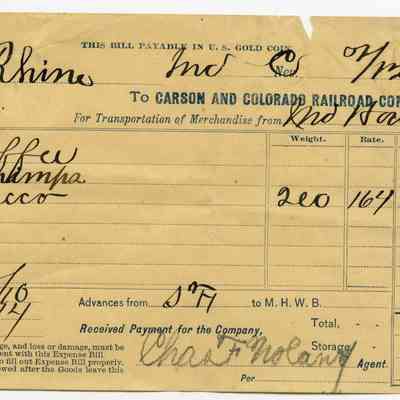 THIS BILL PAYABLE IN U. S. GOLD COIN.
Rhine Ind Co Nev.
To CARSON AND COLORADO RAILROAD COM
For Transportation of Merchandise from
Weight. Rate.
ffee
hampa
cco 200 164
10
Advances from S F to M. H. W. B.
Received Payment for the Company, Total,
Storage
ge, and loss or damage, must be
ent with this Expense Bill
to fill out Expense Bill properly.
owed after the Goods leave this
Chas F Nolan Agent.
Per